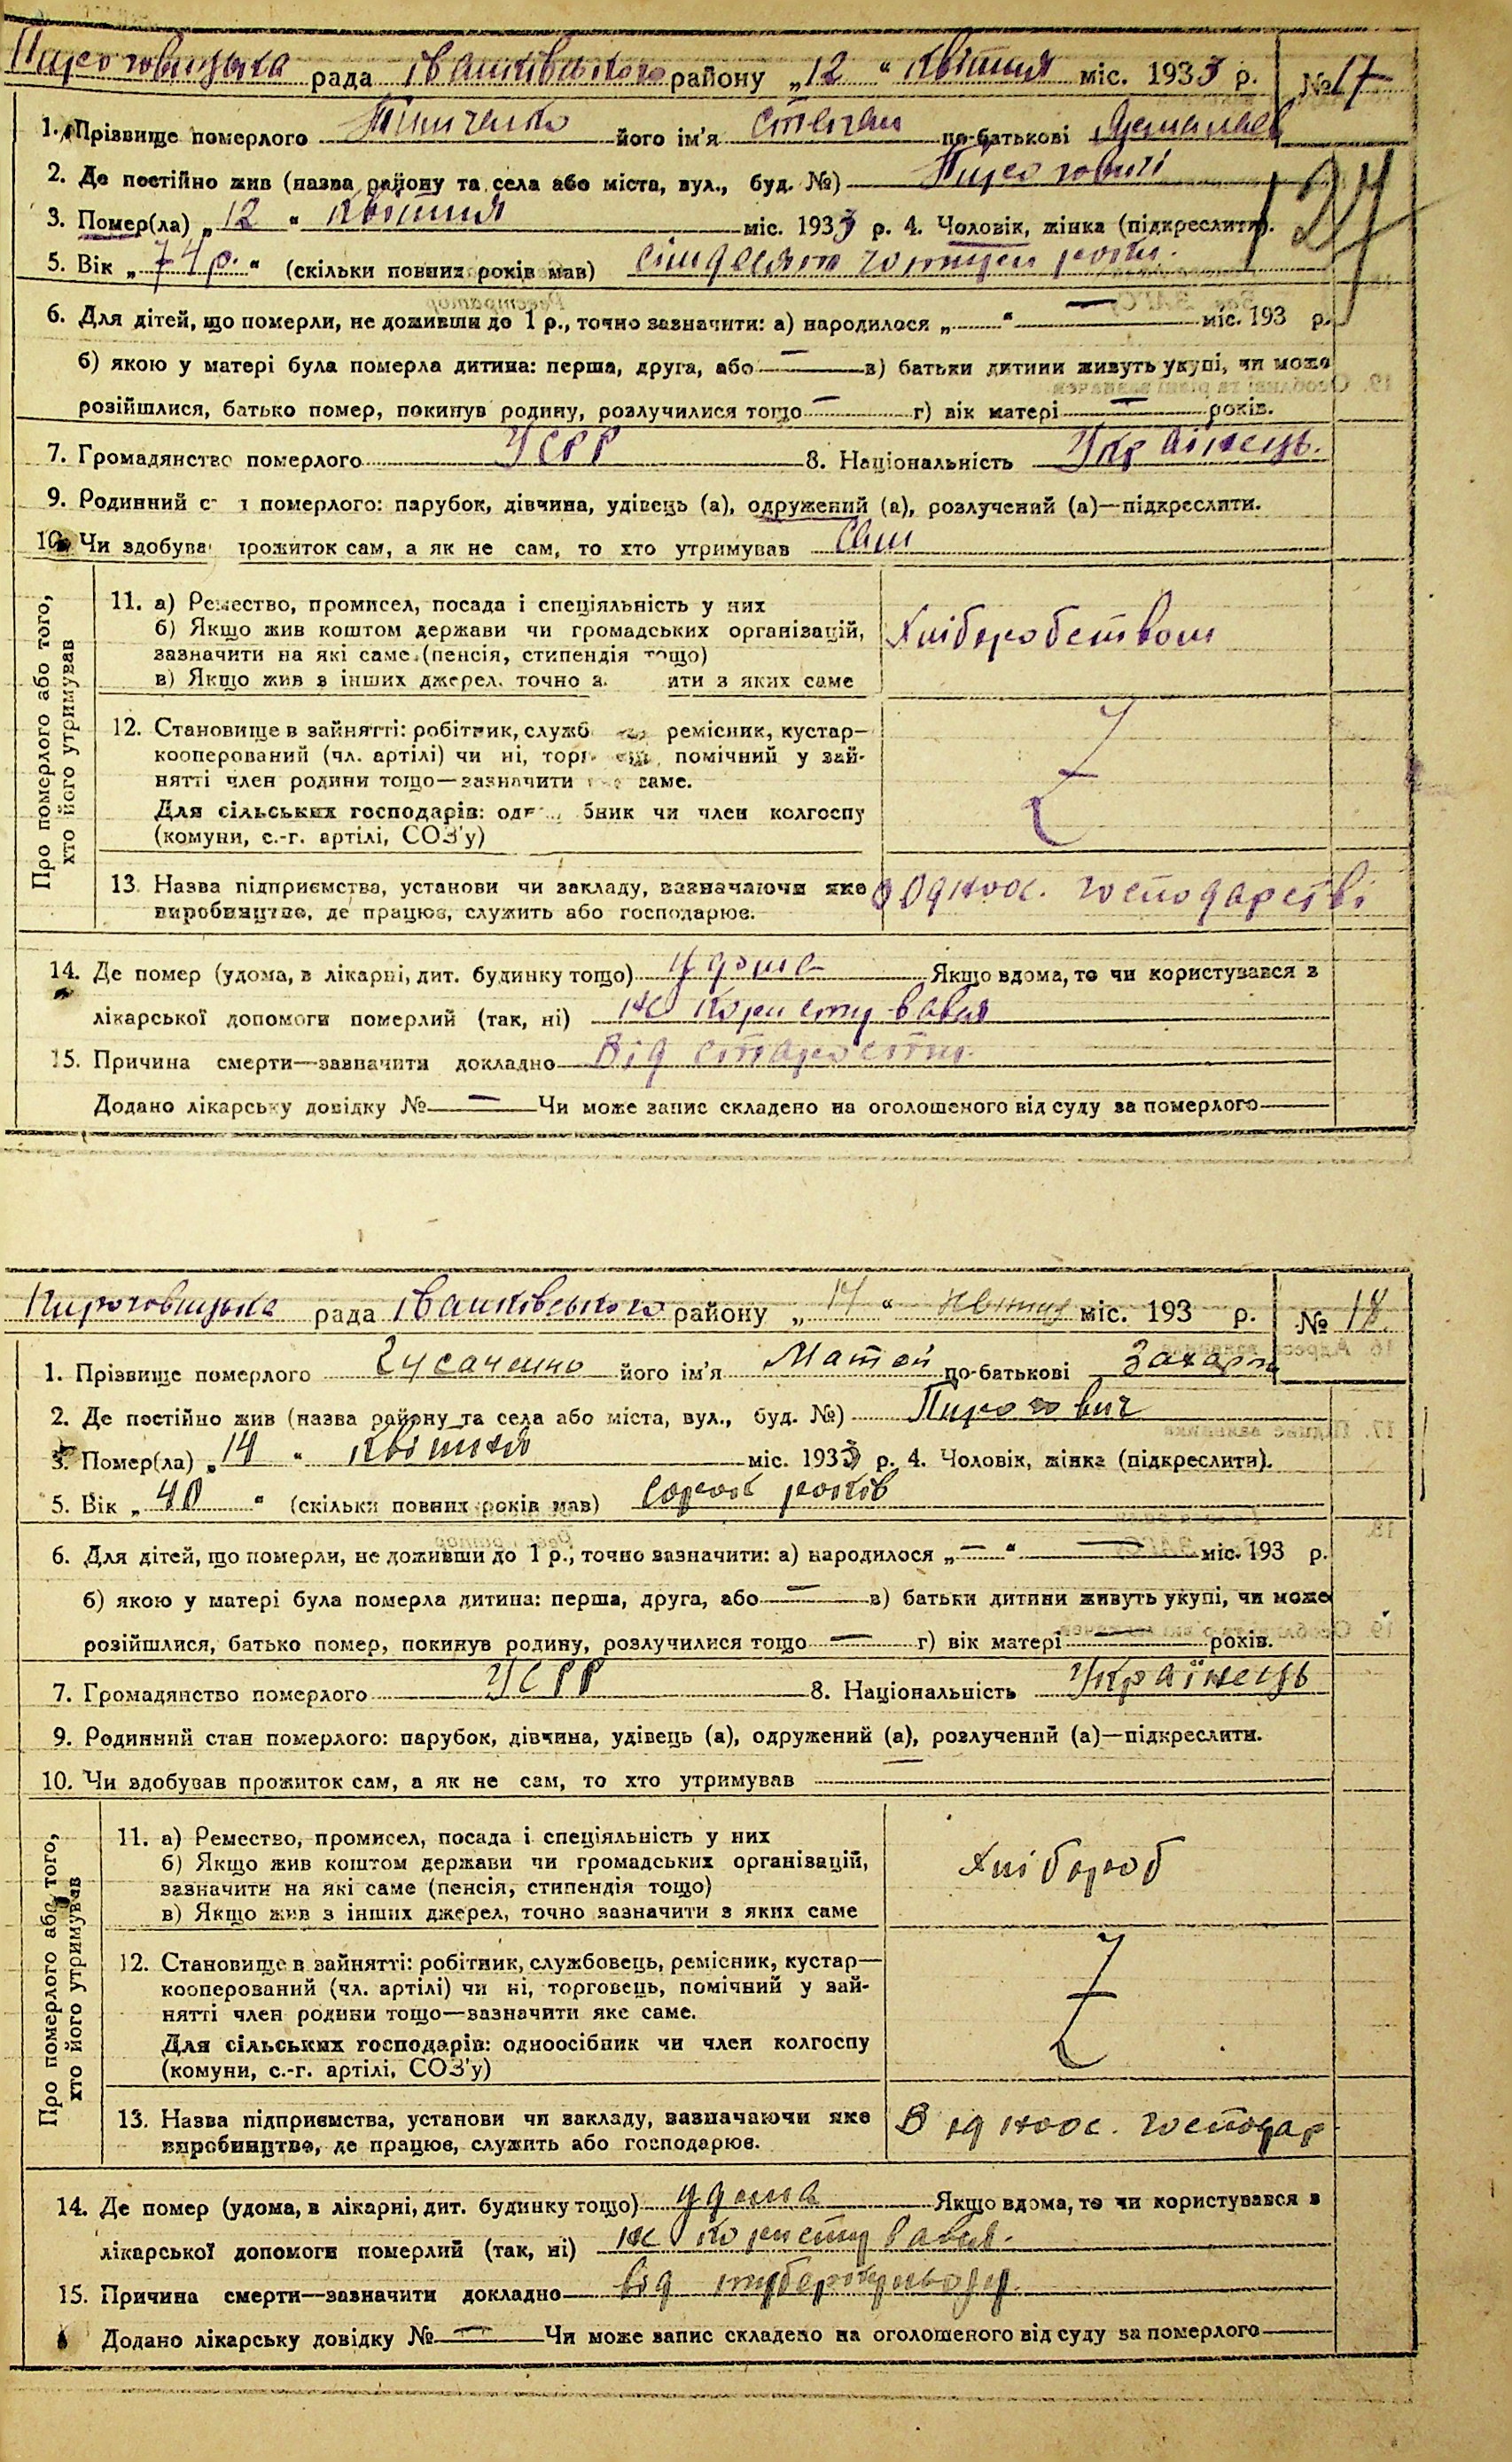 Пироговицька рада Іванківського району „12“ квітня міс. 1933 р. №17
1. Прізвище померлого його ім'я Степан по-батькові
2. Де постійно жив (назва району та села або міста, вул., буд. №) Пироговичі
3. Помер(ла) „12“ квітня міс. 1933 р. 4. Чоловік, жінка (підкреслити).
5. Вік „74 р.“ (скільки повних років мав) сімдесят чотири роки.
6. Для дітей, що померли, не доживши до 1 р., точно зазначити: а) народилося „ “ — міс. 193 р.
б) якою у матері була померла дитина: перша, друга, або — в) батьки дитини живуть укупі, чи може
розійшлися, батько помер, покинув родину, розлучилися тощо — г) вік матері — років.
7. Громадянство померлого УСРР 8. Національність Українець.
9. Родинний с н померлого: парубок, дівчина, удівець (а), одружений (а), розлучений (а)—підкреслити.
10. Чи здобува прожиток сам, а як не сам, то хто утримував сам
Про померлого або того,
хто його утримував
11. а) Ремество, промисел, посада і спеціяльність у них
б) Якщо жив коштом держави чи громадських організацій,
зазначити на які саме (пенсія, стипендія тощо)
в) Якщо жив з інших джерел, точно з ити з яких саме
Хліборобством
12. Становище в зайнятті: робітник, служб ремісник, кустар—
кооперований (чл. артілі) чи ні, торг помічний у зай-
нятті член родини тощо—зазначити саме.
Для сільських господарів: од бник чи член колгоспу
(комуни, с.-г. артілі, СОЗ'у)
13. Назва підприємства, установи чи закладу, зазначаючи яке
виробництво, де працює, служить або господарює.
в одноос. господарстві
14. Де помер (удома, в лікарні, дит. будинку тощо) удома Якщо вдома, то чи користувався з
лікарської допомоги померлий (так, ні) не користувався
15. Причина смерти—зазначити докладно Від старости.
Додано лікарську довідку № — Чи може запис складено на оголошеного від суду за померлого
Пироговицька рада Іванківського району „14“ квітня міс. 193 р. № 18
1. Прізвище померлого Гусаченко його ім'я Матей по-батькові Захаров
2. Де постійно жив (назва району та села або міста, вул., буд. №) Пирогович
3. Помер(ла) „14“ квітня міс. 1933 р. 4. Чоловік, жінка (підкреслити).
5. Вік „40“ (скільки повних років мав) сорок років
6. Для дітей, що померли, не доживши до 1 р., точно зазначити: а) народилося „—“ — міс. 193 р.
б) якою у матері була померла дитина: перша, друга, або — в) батьки дитини живуть укупі, чи може
розійшлися, батько помер, покинув родину, розлучилися тощо — г) вік матері — років.
7. Громадянство померлого УСРР 8. Національність Українець
9. Родинний стан померлого: парубок, дівчина, удівець (а), одружений (а), розлучений (а)—підкреслити.
10. Чи здобував прожиток сам, а як не сам, то хто утримував —
Про померлого або того,
хто його утримував
11. а) Ремество, промисел, посада і спеціяльність у них
б) Якщо жив коштом держави чи громадських організацій,
зазначити на які саме (пенсія, стипендія тощо)
в) Якщо жив з інших джерел, точно зазначити з яких саме
Хлібороб
12. Становище в зайнятті: робітник, службовець, ремісник, кустар—
кооперований (чл. артілі) чи ні, торговець, помічний у зай-
нятті член родини тощо—зазначити яке саме.
Для сільських господарів: одноосібник чи член колгоспу
(комуни, с.-г. артілі, СОЗ'у)
13. Назва підприємства, установи чи закладу, зазначаючи яке
виробництво, де працює, служить або господарює.
В одноос. господар
14. Де помер (удома, в лікарні, дит. будинку тощо) удома Якщо вдома, то чи користувався з
лікарської допомоги померлий (так, ні) не користувався.
15. Причина смерти—зазначити докладно від туберкульозу.
Додано лікарську довідку № — Чи може запис складено на оголошеного від суду за померлого